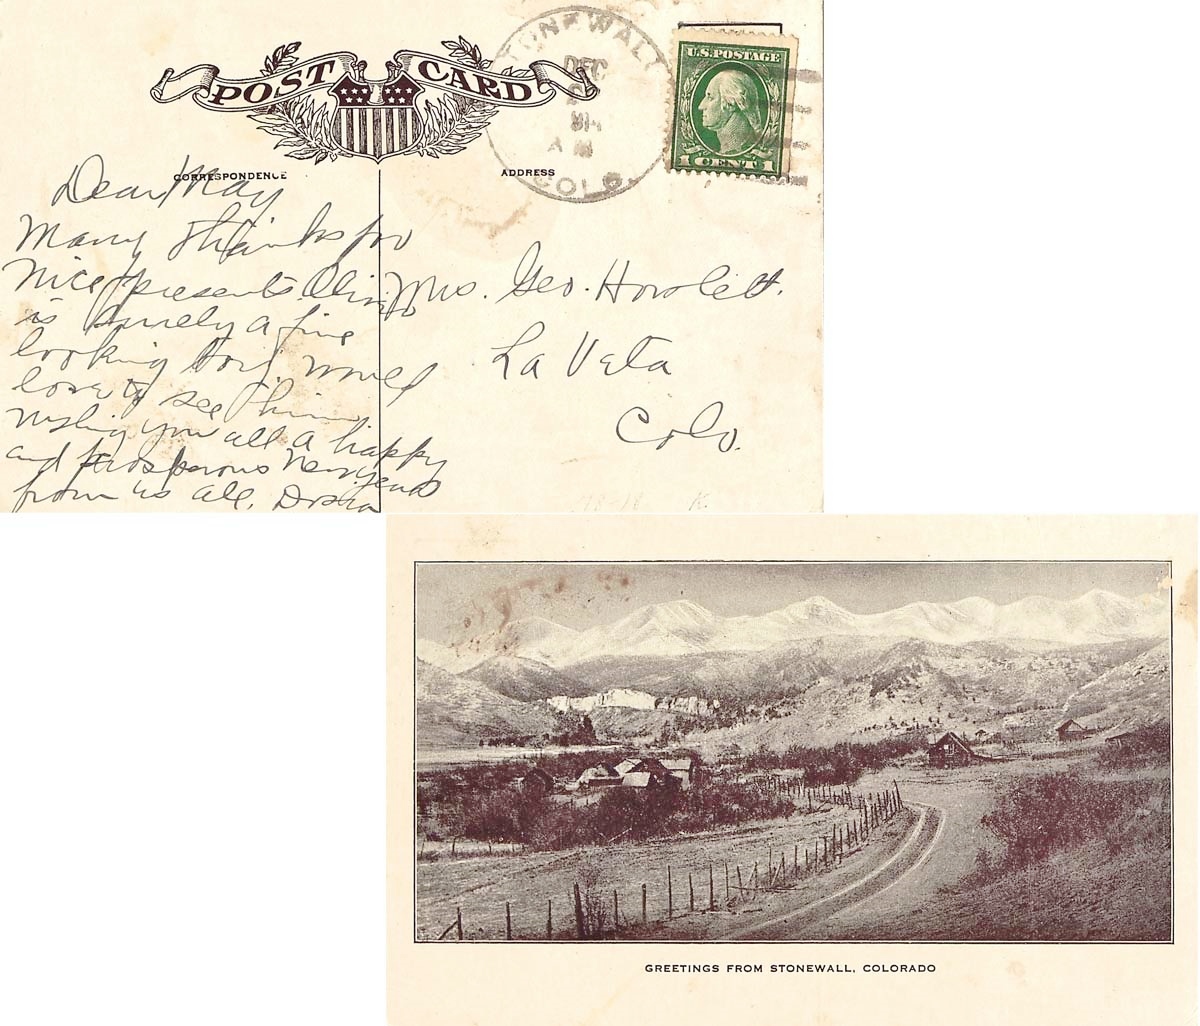 POST CARD
STONEWALL
DEC
A M
COLO.
U.S. POSTAGE
1 CENT 1
CORRESPONDENCE
ADDRESS
Dear May
Many thanks for
nice presents.
is surely a fine
looking boy. would
love to see him
wishing you all a happy
and prosperous New year
from us all.
Mrs. Geo. Howlett.
La Veta
Colo.
GREETINGS FROM STONEWALL, COLORADO